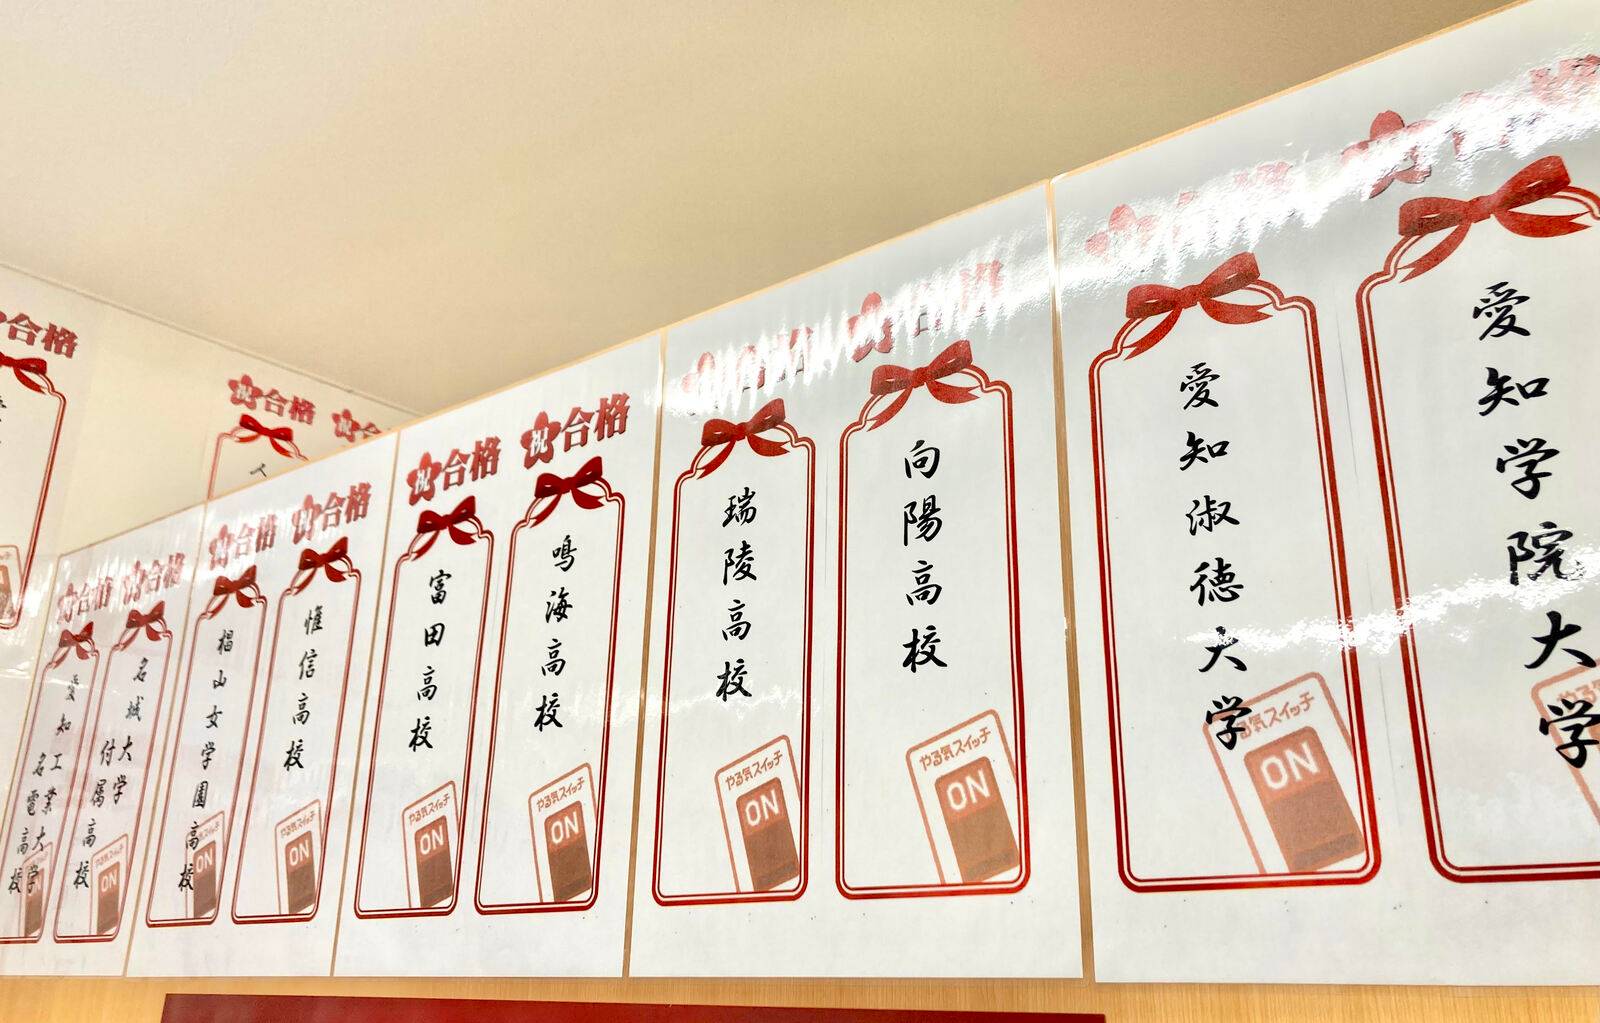 祝合格
愛知学院大学
やる気
愛知淑徳大学
やる気スイッチ
ON
向陽高校
やる気スイッチ
ON
瑞陵高校
やる気スイッチ
ON
祝合格
鳴海高校
やる気スイッチ
ON
祝合格
富田高校
やる気スイッチ
ON
祝合格
惟信高校
やる気スイッチ
ON
祝合格
椙山女学園高校
ON
祝合格
名城大学
付属高校
ON
祝合格
愛知工業大学
名電高校
祝合格
合格